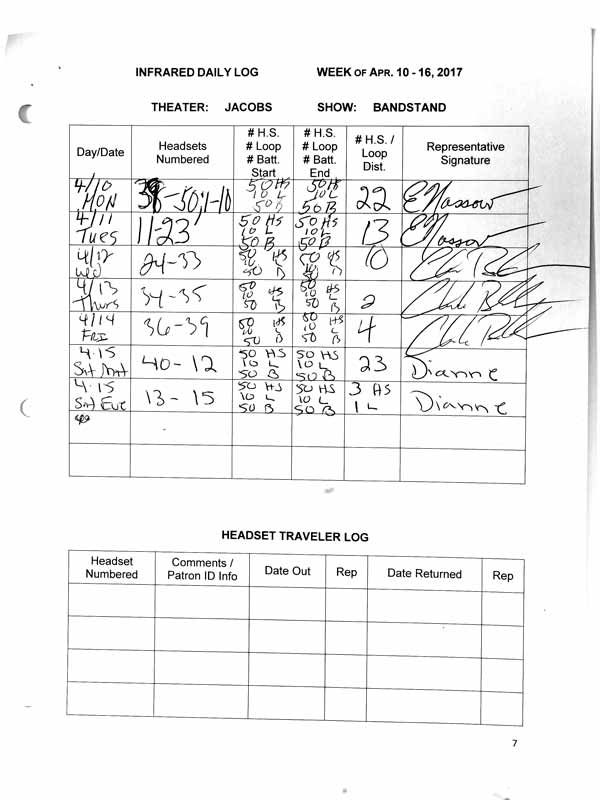 INFRARED DAILY LOG WEEK OF APR. 10 - 16, 2017
THEATER: JACOBS SHOW: BANDSTAND
Day/Date
Headsets
Numbered
# H.S.
# Loop
# Batt.
Start
# H.S.
# Loop
# Batt.
End
# H.S. /
Loop
Dist.
Representative
Signature
4/10
MON
-50, 1-10
50 HS
10 L
50 B
50 HS
10 L
50 B
22
E Nassow
4/11
Tues
11-23
50 HS
10 L
50 B
50 HS
10 L
50 B
13
4/12
Wed
24-33
50 HS
10 L
50 B
50 HS
10 L
50 B
10
4/13
Thurs
34-35
50 HS
10 L
50 B
50 HS
10 L
50 B
2
4/14
FRI
36-39
50 HS
10 L
50 B
50 HS
10 L
50 B
4
4.15
Sat Mat
40-12
50 HS
10 L
50 B
50 HS
10 L
50 B
23
Dianne
4.15
Sat Eve
13-15
50 HS
10 L
50 B
50 HS
10 L
50 B
3 HS
1 L
Dianne
HEADSET TRAVELER LOG
Headset
Numbered
Comments /
Patron ID Info
Date Out
Rep
Date Returned
Rep
7